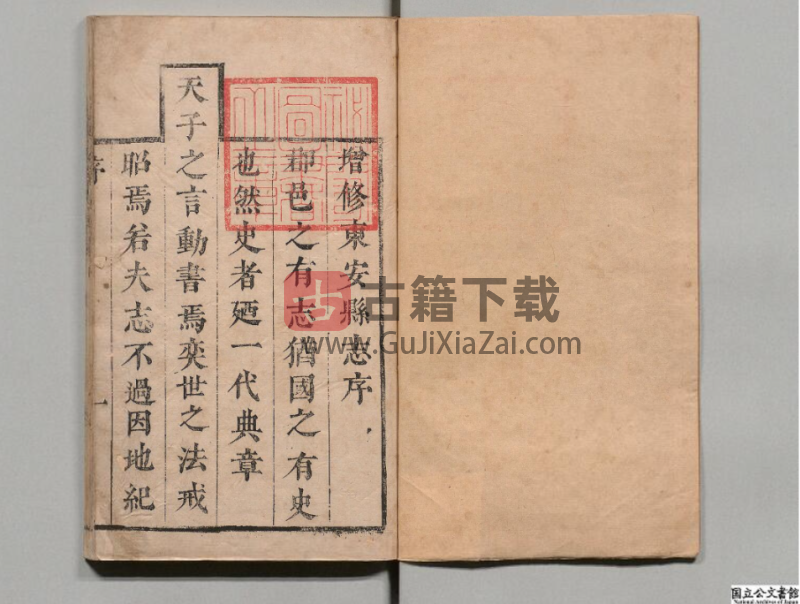 增修東安縣志序
郡邑之有志猶國之有史
也然史者廼一代典章
天子之言動書焉奕世之法戒
昭焉若夫志不過因地紀
序
一
古 古籍下载
www.GuJiXiaZai.com
国立公文書館
National Archives of Japan